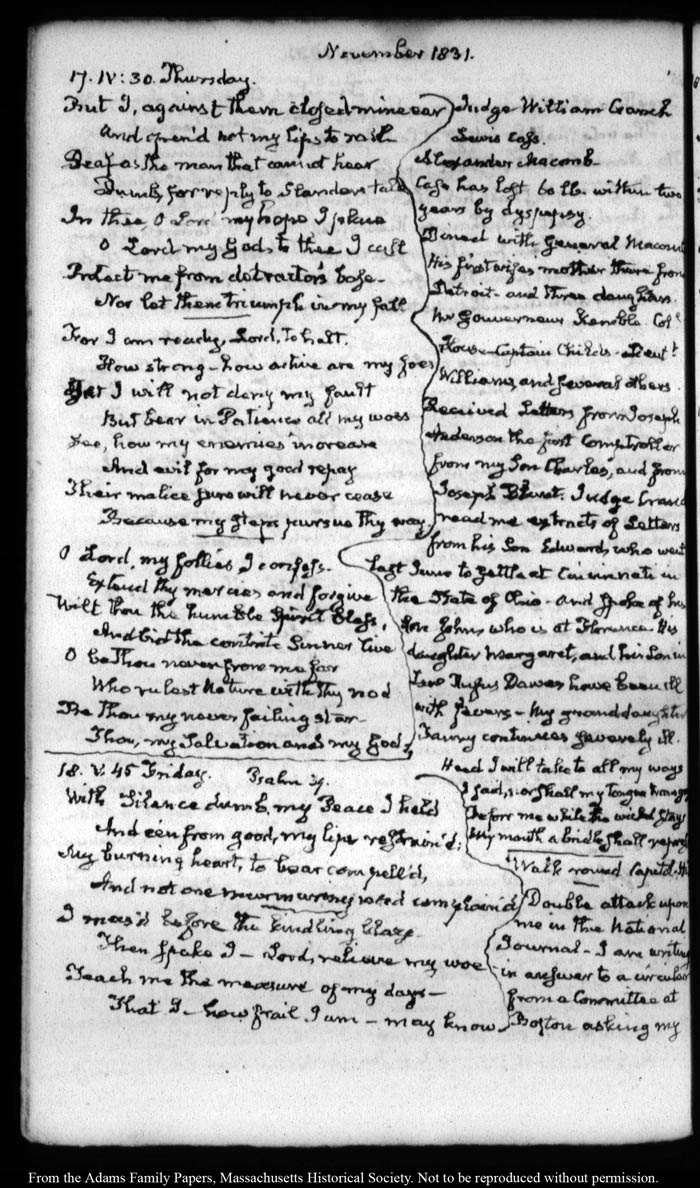 November 1831.
17. IV:30. Thursday.
But I, against them closed mine ear
And open'd not my lips to rail
Deaf as the man that cannot hear
Dumb, for reply to Slanders tale
In thee, O Lord my hope I place
O Lord my God, to thee I call
Protect me from detractors base
Nor let them triumph in my fall
For I am ready, Lord, to halt.
How strong - how active are my foes
Yet I will not deny my fault
But bear in Patience all my woes
See, how my enemies increase
And evil for my good repay
Their malice sure will never cease
Because my steps pursue thy way.
O Lord, my follies I confess.
Extend thy mercies and forgive
Wilt thou the humble Spirit bless,
And bid the contrite Sinner live
O be Thou never from me far
Who rulest Nature with thy nod
Be Thou my never failing star
Thou, my Salvation and my God,
Judge William Cranch
Lewis Cass.
Alexander Macomb
Cass has lost 60 lb. within two
years by dyspepsy.
Dined with General Macomb
His first wifes mother there from
Detroit - and three daughters.
Mr Gouverneur Kemble. Colo
House - Captain Childs - Lieutt
Williams, and several others.
Received Letters from Joseph
Anderson the first Comptroller
from my Son Charles, and from
Joseph Blunt. Judge Cranch
read me extracts of Letters
from his Son Edward, who went
last June to settle at Cincinnati in
the State of Ohio - and spoke of his
Son John, who is at Florence. His
daughter Margaret, and his Son in
Law Rufus Dawes have been ill
with fevers - My granddaughter
Fanny continues severely ill.
18. V. 45 Friday. Psalm 39.
With Silence dumb, my Peace I held
And e'en from good, my lips refrain'd;
My burning heart, to bear compell'd,
And not one murmuring word complain'd
I mus'd before the kindling blaze
Then spake I - Lord, relieve my woe
Teach me the measure of my days -
That I - how frail I am - may know
Heed I will take to all my ways
I said, nor shall my tongue transg
Before me while the wicked stays
My mouth a bridle shall repress
Walk round Capitol Hi
Double attack upon
me in the National
Journal - I am writing
in answer to a circular
from a Committee at
Boston asking my
From the Adams Family Papers, Massachusetts Historical Society. Not to be reproduced without permission.